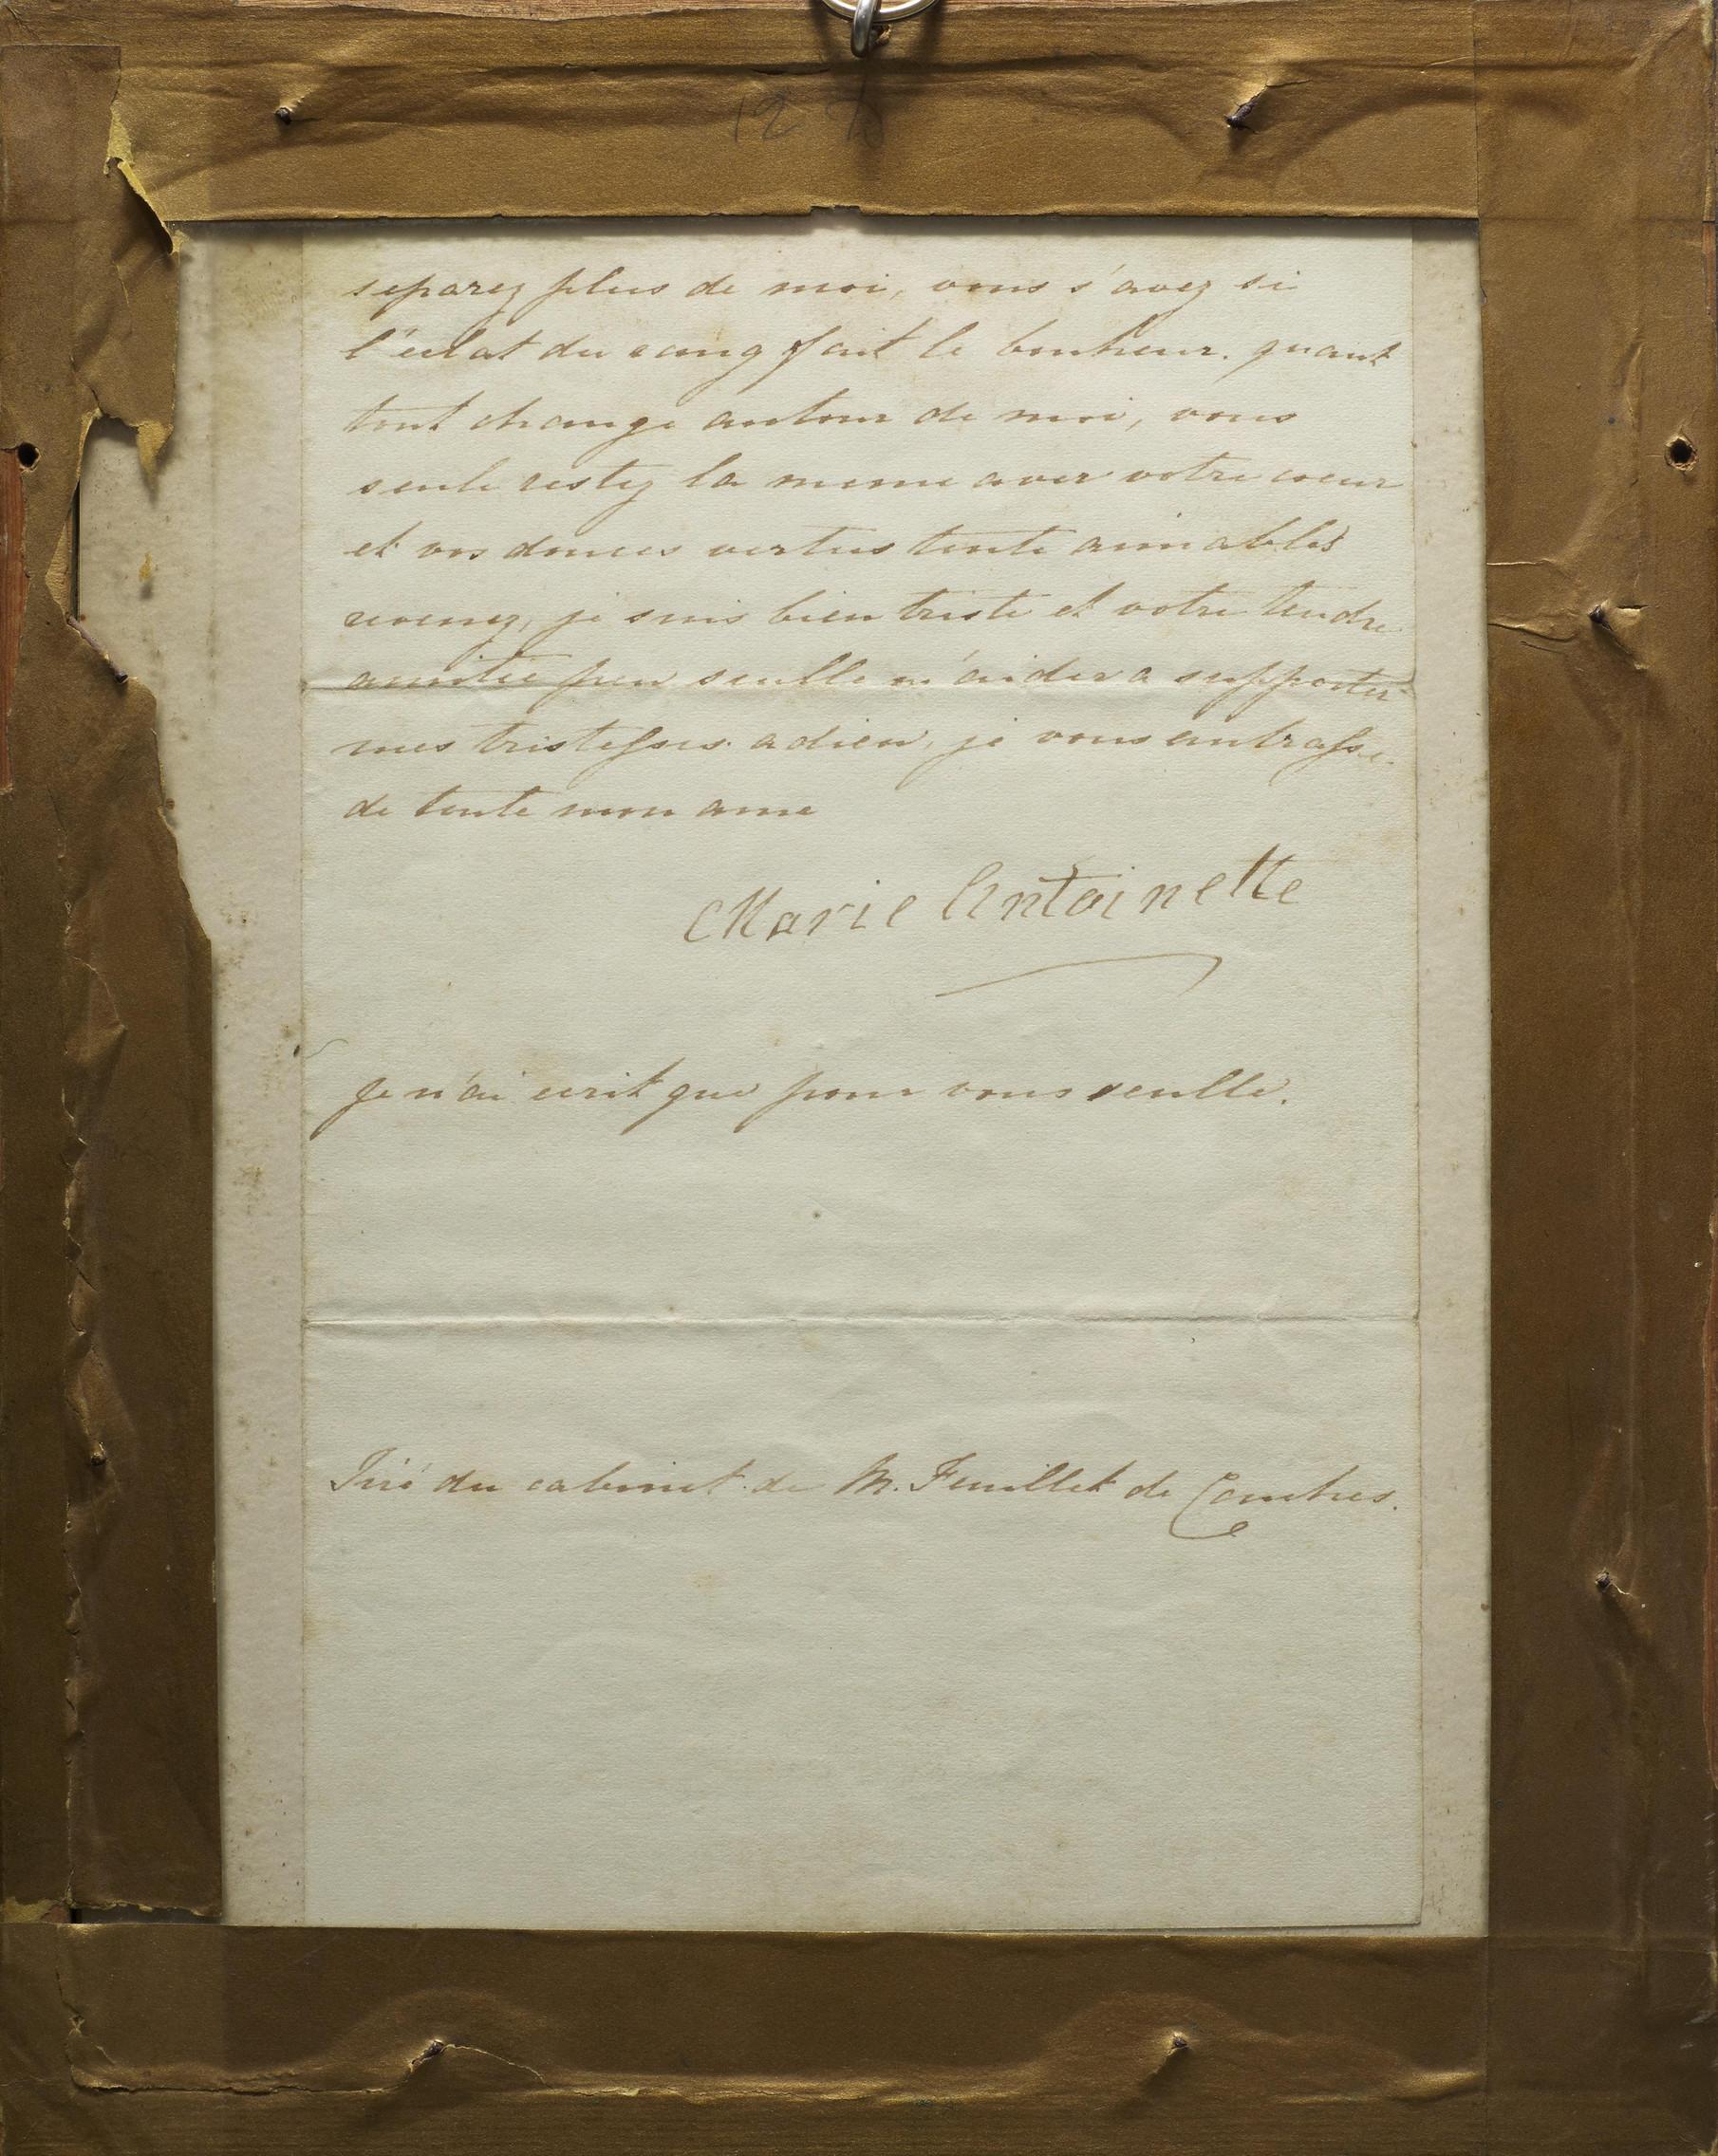 separez plus de moi, vous s'avez si
l'éclat du rang fait le bonheur. quant
tout change autour de moi, vous
seule restez la meme avec votre coeur
et vos douces vertus toute aimables
revenez, je suis bien triste et votre tendre
amitie peu seulle m'aider a supporter
mes tristesses. adieu, je vous embrasse
de toute mon ame
Marie Antoinette
Je n'ai ecrit que pour vous seulle.
Tiré du cabinet de M. Feuillet de Conches.